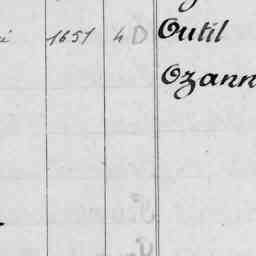 1651 4 D Outil
Ozann